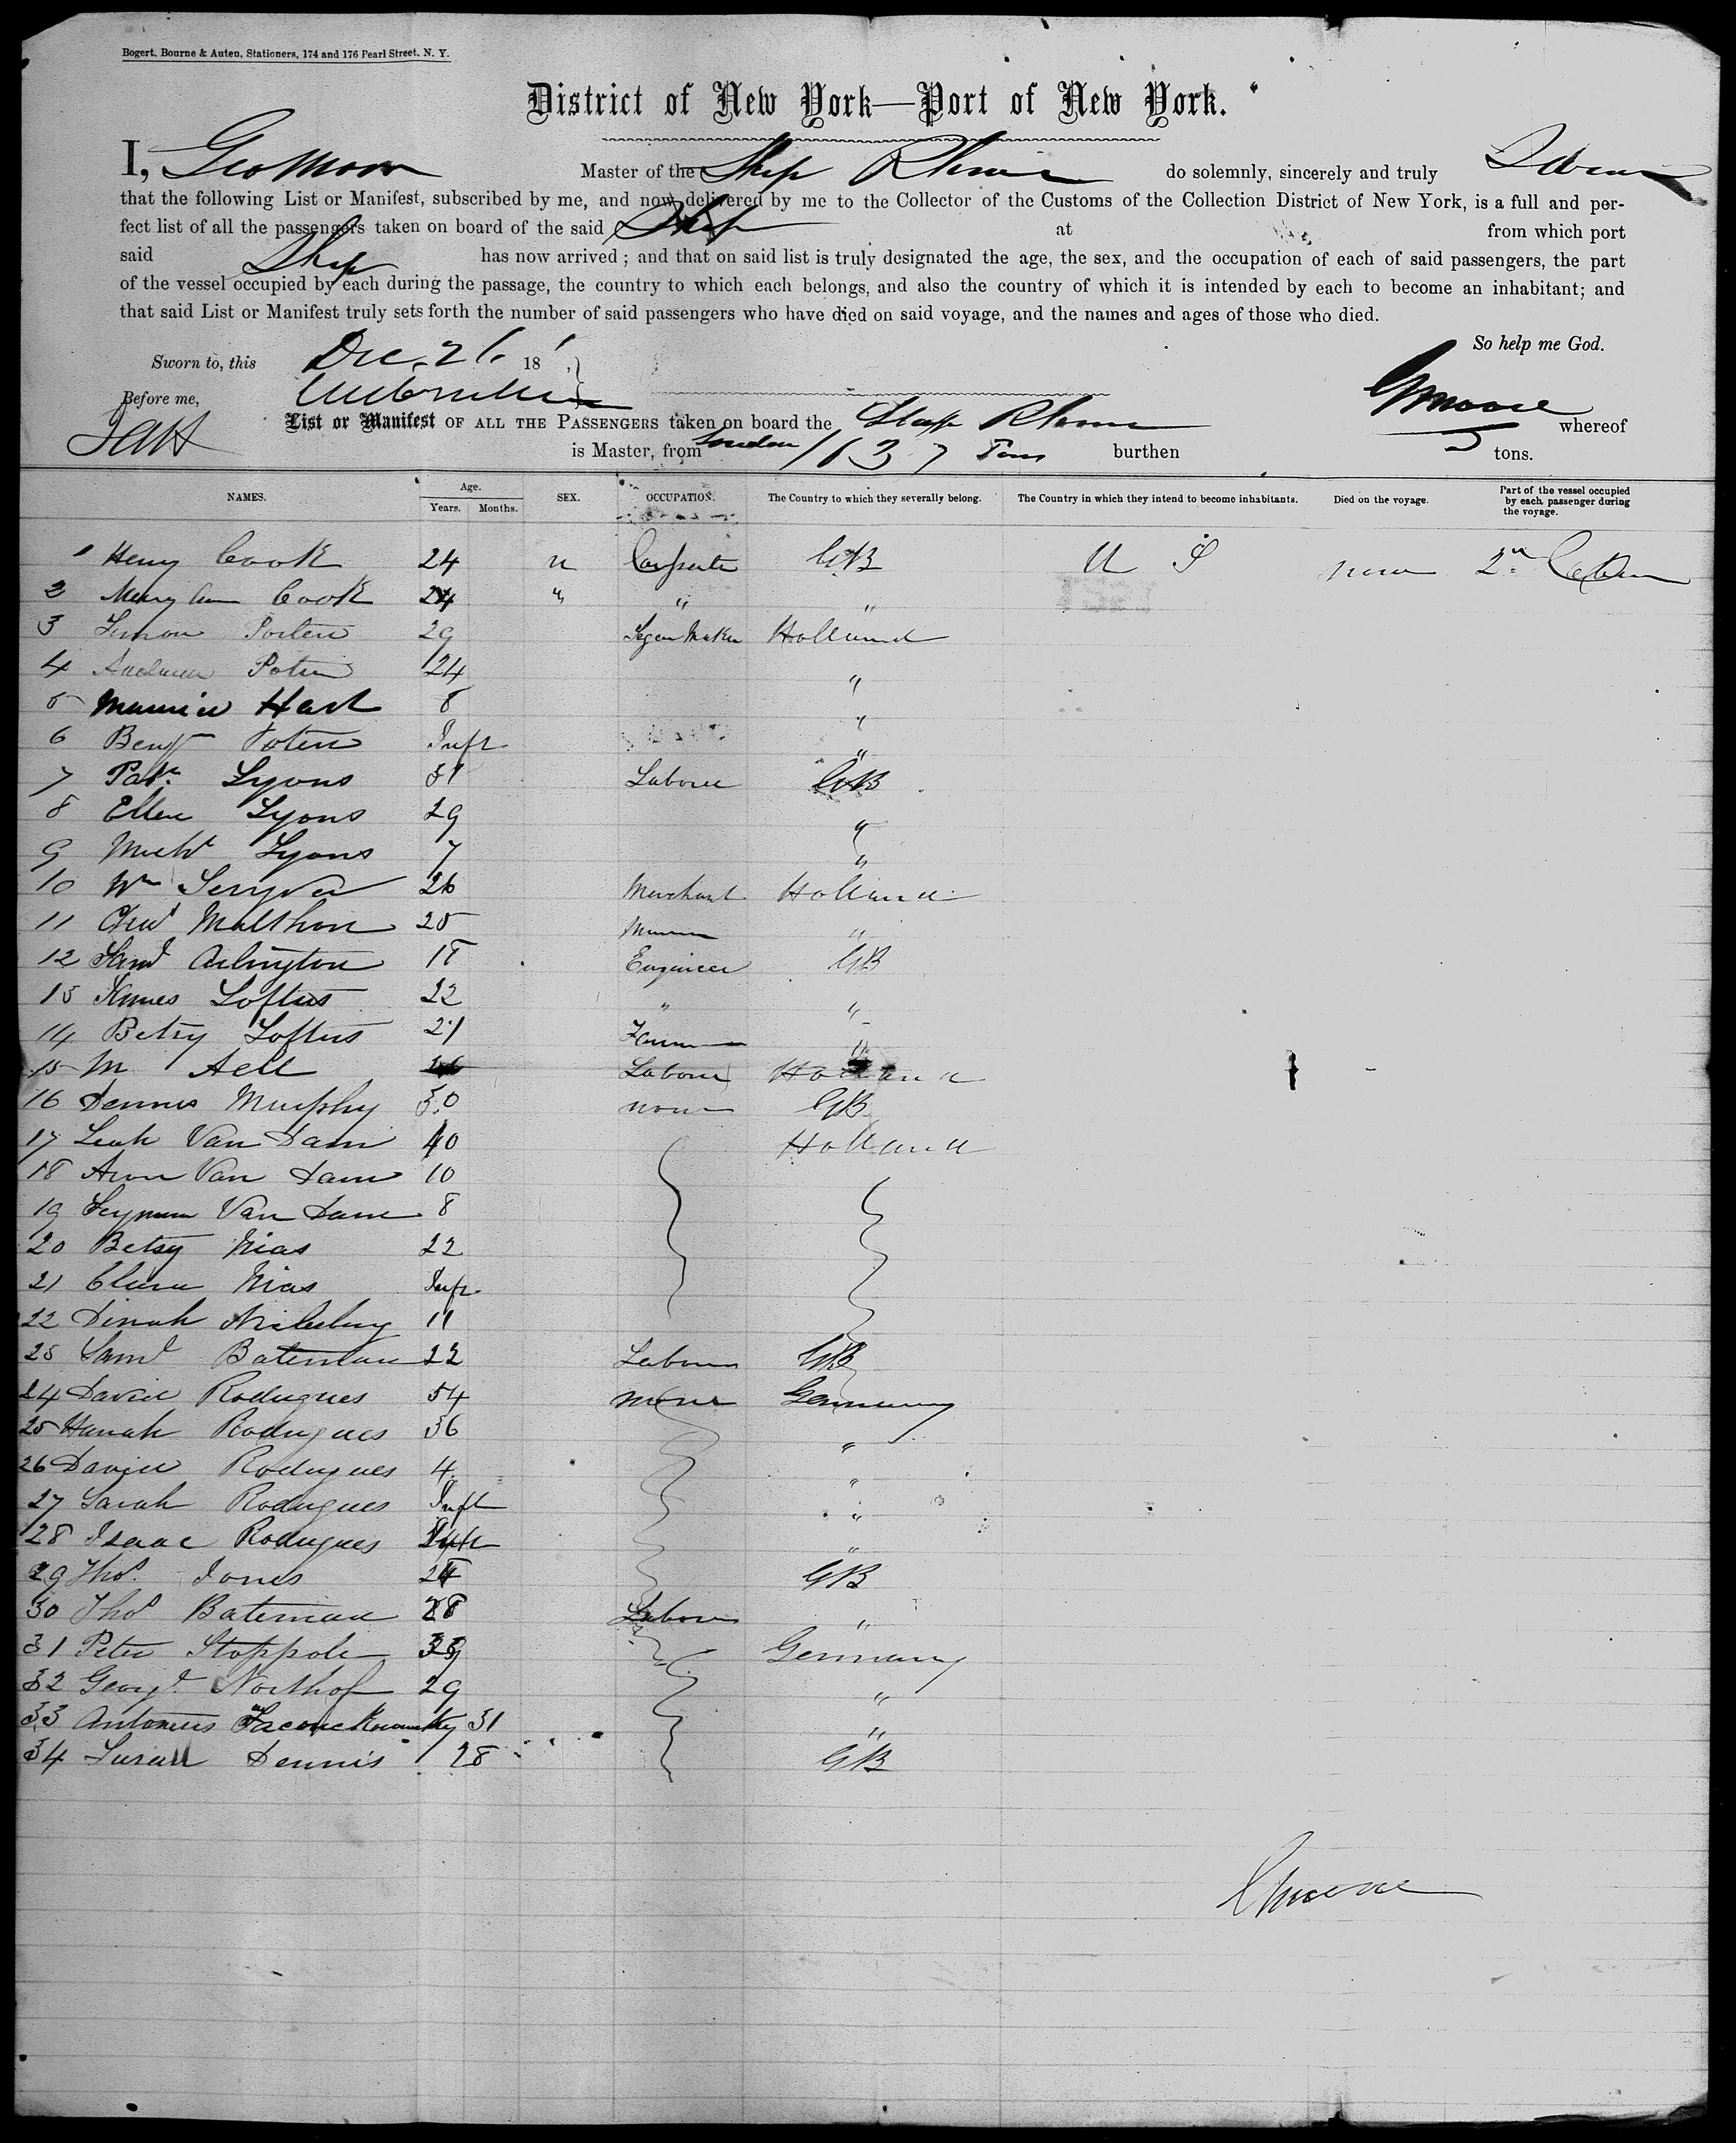 Bogert, Bourne & Auten, Stationers, 174 and 176 Pearl Street, N. Y.
District of New York—Port of New York.
I, Geo Moor Master of the Ship Rhine do solemnly, sincerely and truly Swear
that the following List or Manifest, subscribed by me, and now delivered by me to the Collector of the Customs of the Collection District of New York, is a full and per-
fect list of all the passengers taken on board of the said Ship at from which port
said Ship has now arrived ; and that on said list is truly designated the age, the sex, and the occupation of each of said passengers, the part
of the vessel occupied by each during the passage, the country to which each belongs, and also the country of which it is intended by each to become an inhabitant; and
that said List or Manifest truly sets forth the number of said passengers who have died on said voyage, and the names and ages of those who died.
So help me God.
Sworn to, this Dec. 26 18
Before me,
List or Manifest OF ALL THE PASSENGERS taken on board the Ship Rhine GMoore whereof
is Master, from London 1037 Tons burthen tons.
NAMES. Age. Years. Months. SEX. OCCUPATION. The Country to which they severally belong. The Country in which they intend to become inhabitants. Died on the voyage. Part of the vessel occupied by each passenger during the voyage.
1 Henry Cook 24 Carpenter GB U S none 2n Cabin
2 Mary Ann Cook 24 " " "
3 Simon 29 Segar Maker Holland
4 24 "
5 Maurice Hart 8 "
6 Benj Inft "
7 Patk Lyons 31 Labourer GB
8 Ellen Lyons 29 "
9 Michl Lyons 7 "
10 Wm 26 Merchant Holland
11 Malthon 25 "
12 Saml Arlington 18 Engineer GB
13 James Loftus 22 " "
14 Betsy Loftus 21 "
15 M Aell Labourer Holland
16 Dennis Murphy 30 none GB
17 Leah Van Dam 40 Holland
18 Aron Van Dam 10
19 Van Dam 8
20 Betsy Nias 22
21 Clara Nias Inft
22 Dinah 11
23 Saml Bateman 22 Labour GB
24 David Rodugues 54 none Germany
25 Hanah Rodugues 36 "
26 David Rodugues 4 "
27 Sarah Rodugues Inft "
28 Isaac Rodugues Inft "
29 Thos Jones GB
30 Thos Bateman 28 Labour "
31 Peter Stoppole Germany
32 Northof 29 "
33 Antonius 31 "
34 Dennis 28 GB
GMoore